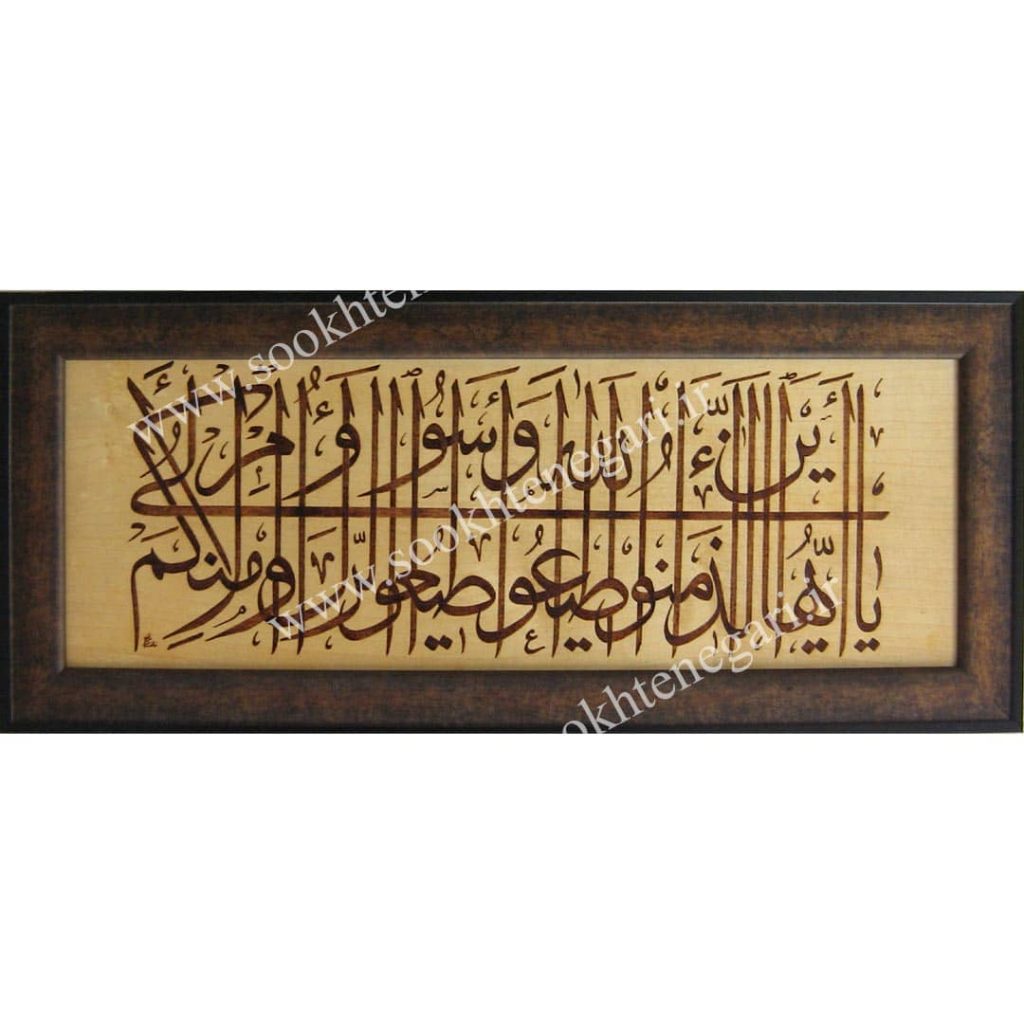 يا أيها الذين ءامنوا أطيعوا الله وأطيعوا الرسول وأولى الأمر منكم
www.sookhtenegari.ir
www.sookhtenegari.ir
sookhtenegari.ir